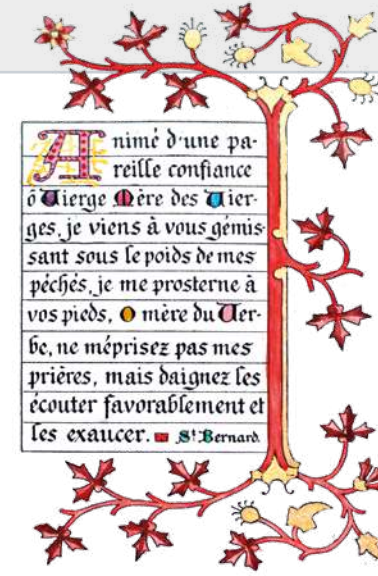 Animé d'une pa-
reille confiance
ô Vierge Mère des Vier-
ges, je viens à vous gémis-
sant sous le poids de mes
péchés, je me prosterne à
vos pieds, O mère du Ver-
be, ne méprisez pas mes
prières, mais daignez les
écouter favorablement et
les exaucer. St Bernard.